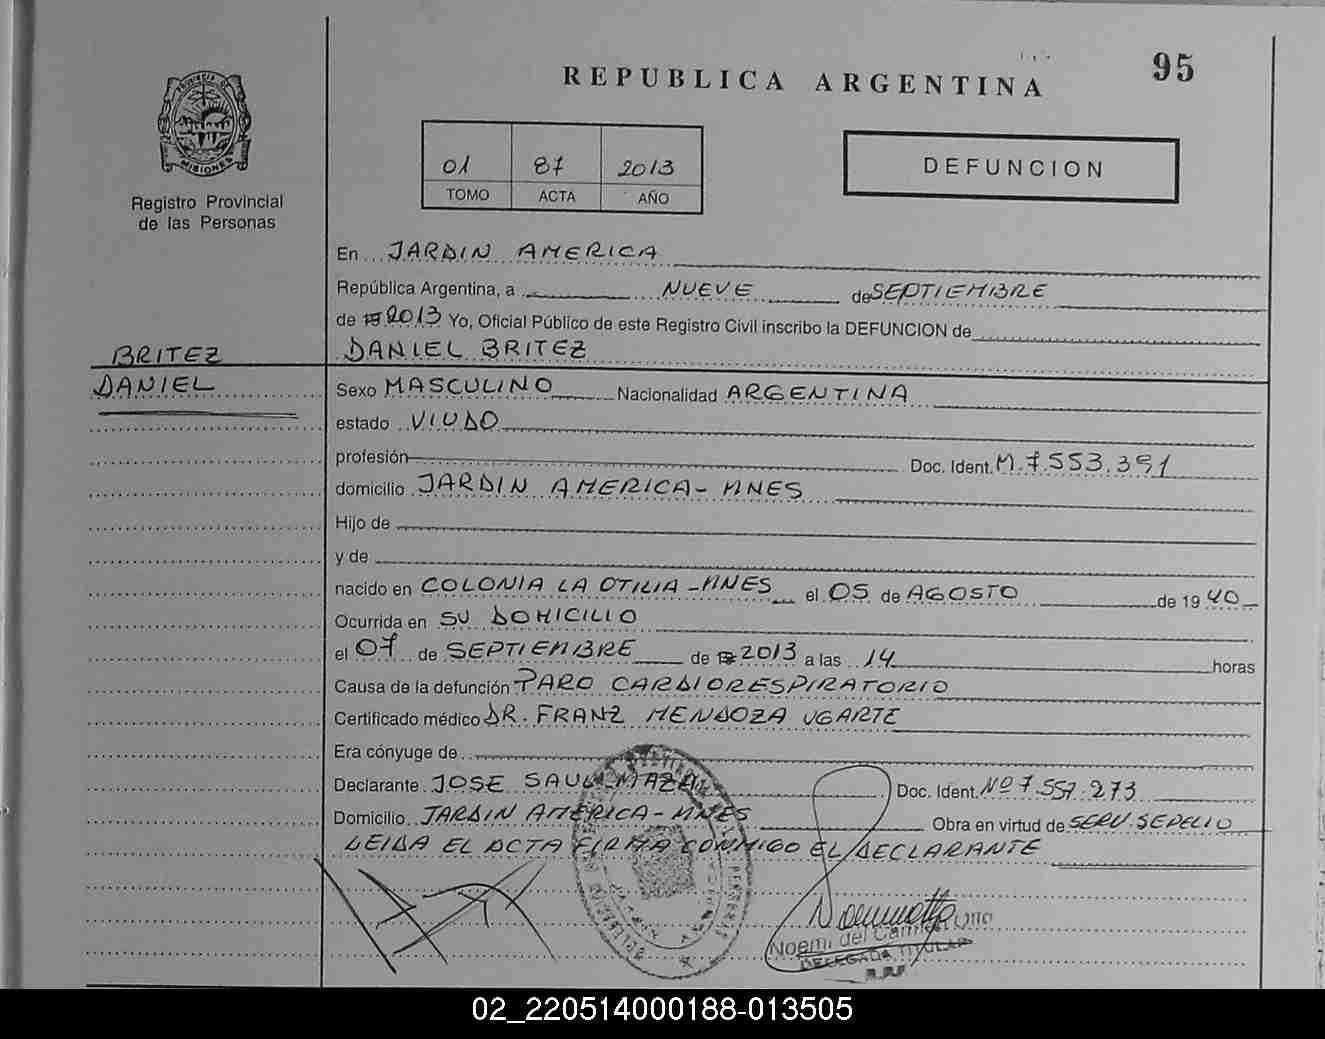 REPUBLICA ARGENTINA
95
PROVINCIA DE
MISIONES
Registro Provincial
de las Personas
01 87 2013
TOMO ACTA AÑO
DEFUNCION
En JARDIN AMERICA
República Argentina, a NUEVE de SEPTIEMBRE
de 19 2013 Yo, Oficial Público de este Registro Civil inscribo la DEFUNCION de
BRITEZ
DANIEL BRITEZ
DANIEL
Sexo MASCULINO Nacionalidad ARGENTINA
estado VIUDO
profesión Doc. Ident. M.7.553.391
domicilio JARDIN AMERICA-MNES
Hijo de
y de
nacido en COLONIA LA OTILIA-MNES el 05 de AGOSTO de 19 40
Ocurrida en SU DOMICILIO
el 07 de SEPTIEMBRE de 19 2013 a las 14 horas
Causa de la defunción PARO CARDIORESPIRATORIO
Certificado médico DR. FRANZ MENDOZA UGARTE
Era cónyuge de
Declarante JOSE SAUL MAZA Doc. Ident. Nº 7.557.273
Domicilio JARDIN AMERICA-MNES Obra en virtud de SERV.SEPELIO
LEIDA EL ACTA FIRMA CONMIGO EL DECLARANTE
Noemi del Carmen
DELEGADA TITULAR
02_220514000188-013505